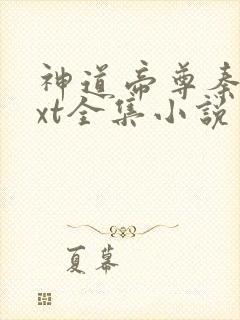 神道帝尊秦
xt全集小说
夏幕